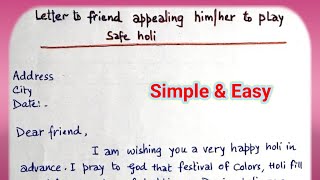 Letter to friend appealing him/her to play
safe holi
Address
City
Date:-
Simple & Easy
Dear friend,
I am wishing you a very happy holi in
advance. I pray to God that festival of colors, Holi fill